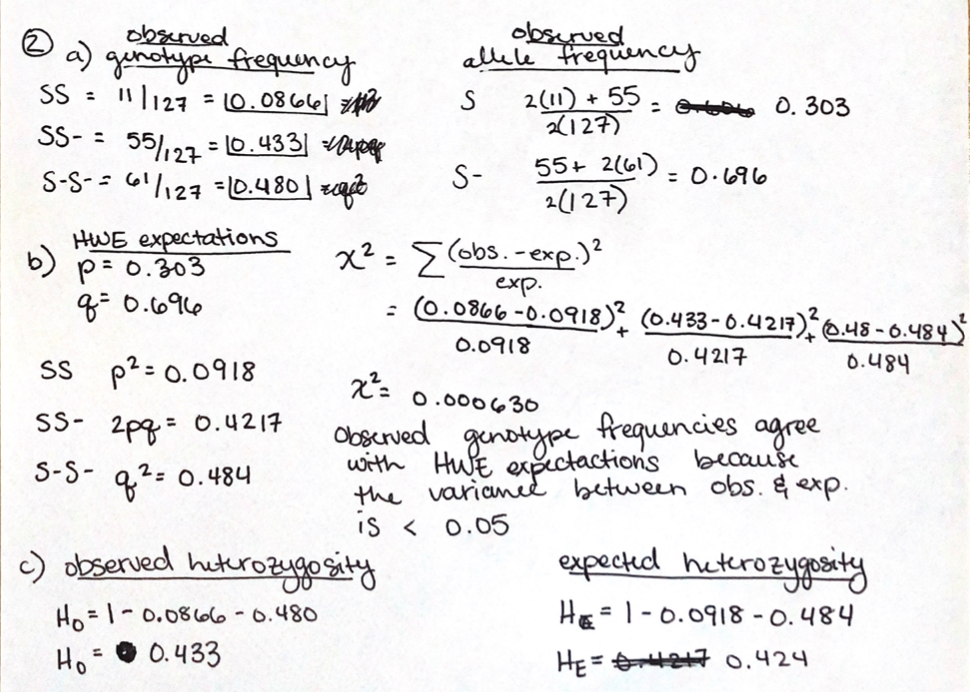 ② a) observed genotype frequency
SS = 11/127 = |0.0866|
SS- = 55/127 = |0.433|
S-S- = 61/127 = |0.480|
observed allele frequency
S 2(11) + 55 / 2(127) = 0.303
S- 55 + 2(61) / 2(127) = 0.696
b) HWE expectations
p = 0.303
q = 0.696
SS p² = 0.0918
SS- 2pq = 0.4217
S-S- q² = 0.484
x² = Σ (obs. - exp.)² / exp.
= (0.0866 - 0.0918)² / 0.0918 + (0.433 - 0.4217)² / 0.4217 + (0.48 - 0.484)² / 0.484
x² = 0.000630
Observed genotype frequencies agree
with HWE expectactions because
the variance between obs. & exp.
is < 0.05
c) observed heterozygosity
H₀ = 1 - 0.0866 - 0.480
H₀ = 0.433
expected heterozygosity
H_E = 1 - 0.0918 - 0.484
H_E = 0.424